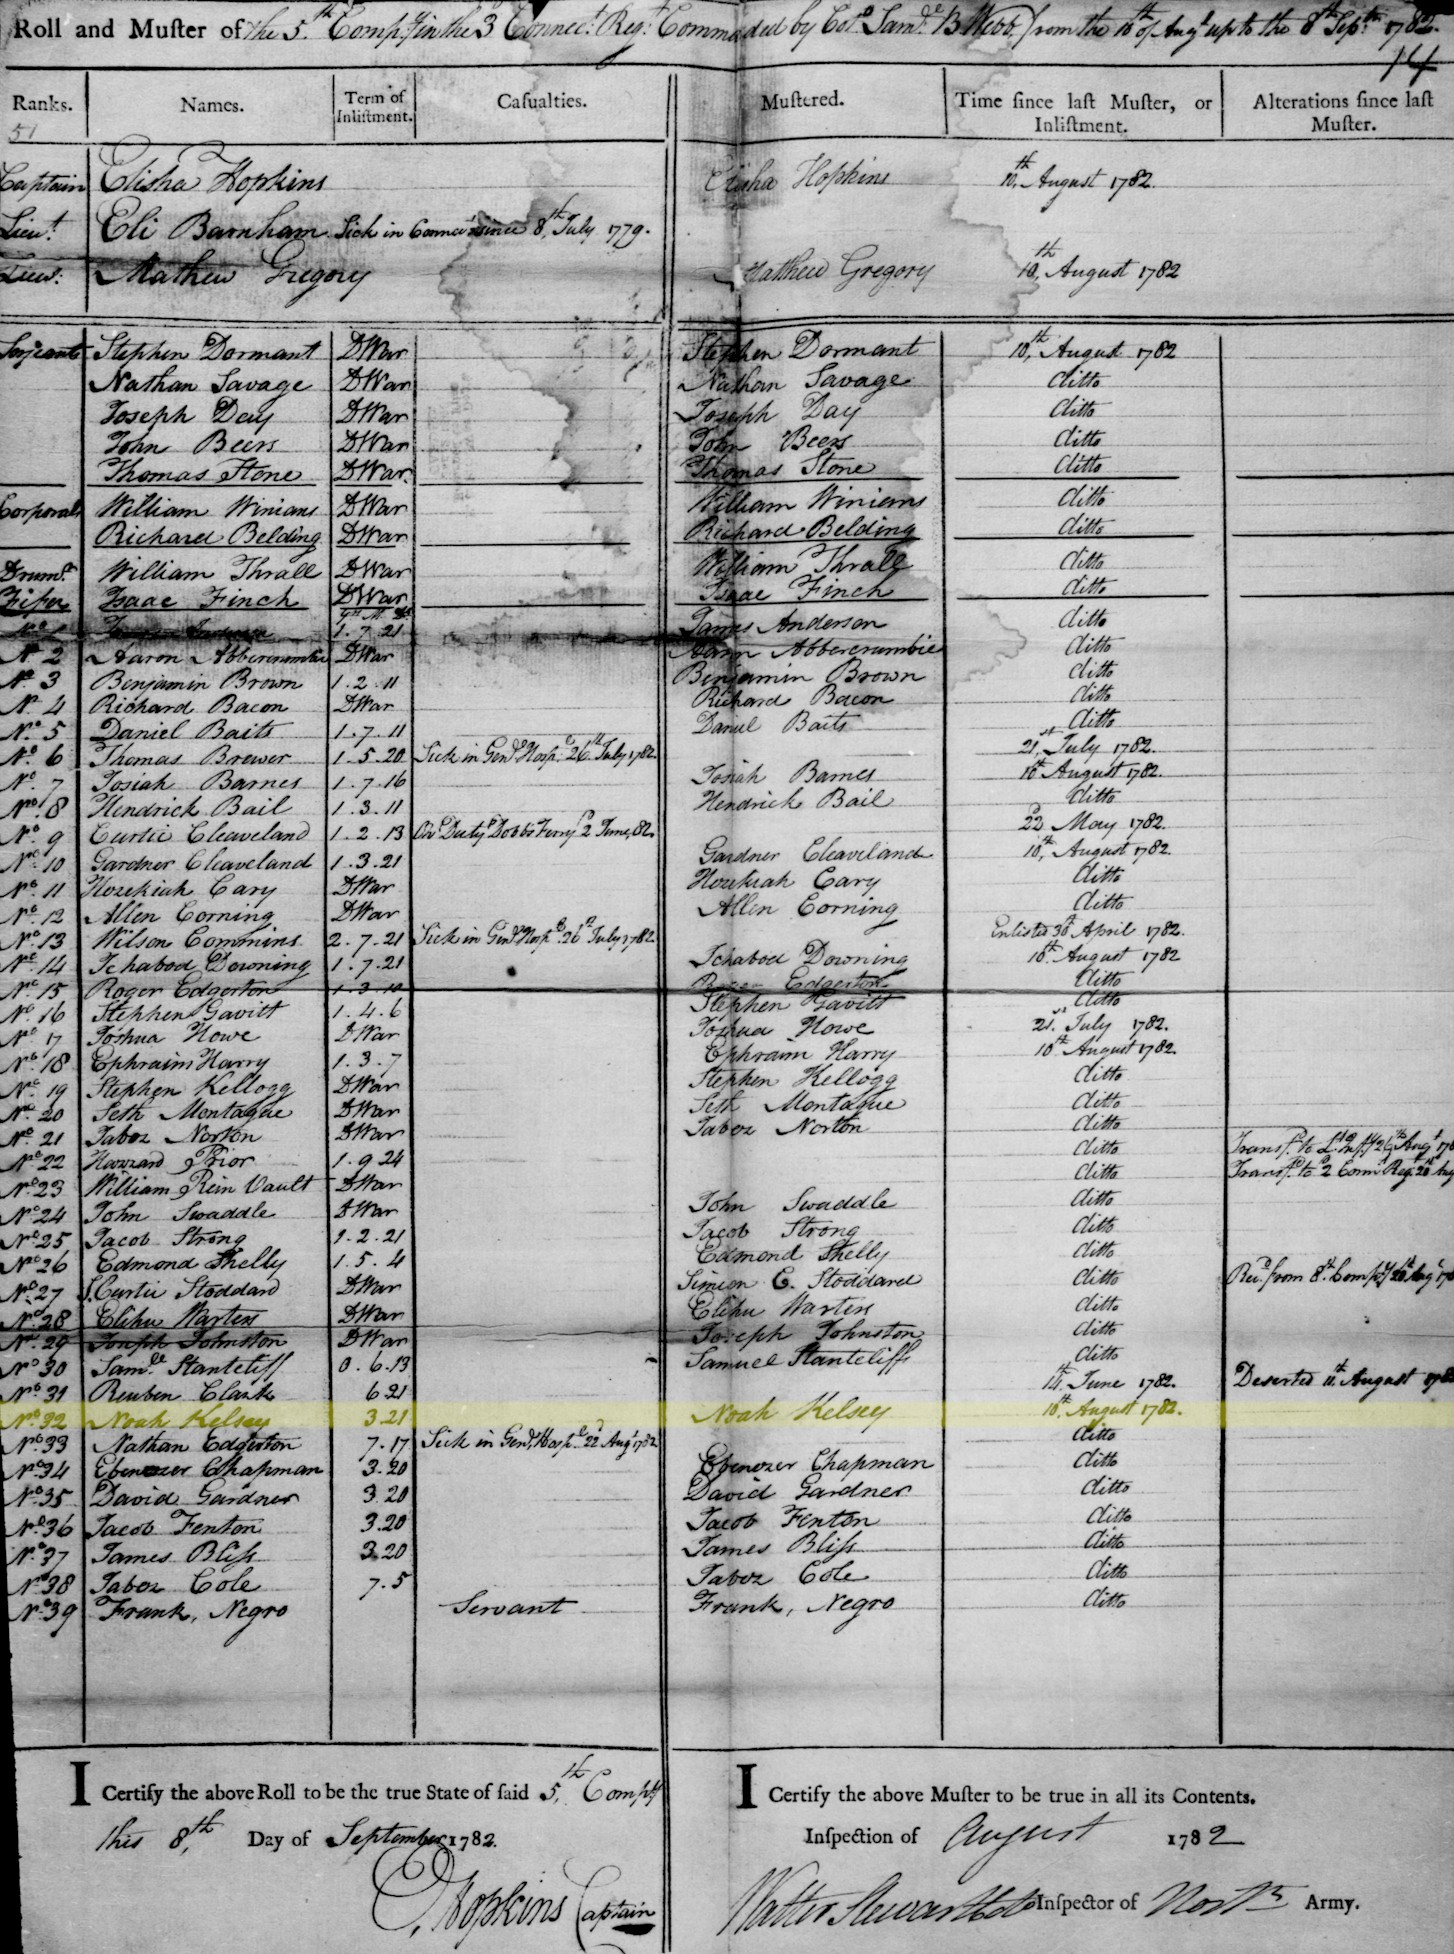 Roll and Muster of the 5th Compy in the 3d Connect Regt Commanded by Colo Saml B Webb from the 10th of Augt up to the 8th Septr 1782.
14
Ranks. Names. Term of Inlistment. Casualties. Mustered. Time since last Muster, or Inlistment. Alterations since last Muster.
51
Captain Elisha Hopkins Elisha Hopkins 10th August 1782.
Lieut. Eli Barnham Sick in Connect since 8th July 1779.
Lieu: Mathew Gregory Matthew Gregory 10th August 1782
Serjeants Stephen Dormant DWar Stephen Dormant 10th August 1782
Nathan Savage DWar Nathan Savage ditto
Joseph Day DWar Joseph Day ditto
John Beers DWar John Beers ditto
Thomas Stone DWar. Thomas Stone ditto
Corporals William Winians DWar William Winians ditto
Richard Belding DWar Richard Belding ditto
Drumr William Thrall DWar William Thrall ditto
Fifer Isaac Finch DWar Isaac Finch ditto
No 1 James Anderson 1.7.21 James Anderson ditto
No 2 Aaron Abbercrumbie DWar Aaron Abbercrumbie ditto
No 3 Benjamin Brown 1.2.11 Benjamin Brown ditto
No 4 Richard Bacon DWar Richard Bacon ditto
No 5 Daniel Baits 1.7.11 Daniel Baits ditto
No 6 Thomas Brewer 1.5.20 Sick in Genl Hospl 26th July 1782. 21st July 1782.
No 7 Josiah Barnes 1.7.16 Josiah Barnes 10th August 1782.
No 8 Hendrick Bail 1.3.11 Hendrick Bail ditto
No 9 Curtic Cleaveland 1.2.13 On Duty Dobbs Ferry 2d June, 82. 22d May 1782.
No 10 Gardner Cleaveland 1.3.21 Gardner Cleaveland 10th August 1782.
No 11 Hezekiah Cary DWar Hezekiah Cary ditto
No 12 Allen Corning DWar Allen Corning ditto
No 13 Wilson Commins 2.7.21 Sick in Genl Hospl 26th July 1782. Enlisted 30th April 1782.
No 14 Ichabod Downing 1.7.21 Ichabod Downing 10th August 1782
No 15 Roger Edgerton 1.3.10 Roger Edgerton ditto
No 16 Stephen Gavitt 1.4.6 Stephen Gavitt ditto
No 17 Joshua Howe DWar Joshua Howe 21st July 1782.
No 18 Ephraim Harry 1.3.7 Ephraim Harry 10th August 1782.
No 19 Stephen Kellogg DWar Stephen Kellogg ditto
No 20 Seth Montague DWar Seth Montague ditto
No 21 Jabez Norton DWar Jabez Norton ditto
No 22 Hazzard Prior 1.9.24 ditto Transfd to Lt Infy 26th Augt
No 23 William Rein Vault DWar ditto Transfd to 2d Connt Regt
No 24 John Swaddle DWar John Swaddle ditto
No 25 Jacob Strong 1.2.21 Jacob Strong ditto
No 26 Edmond Shelly 1.5.4 Edmond Shelly ditto
No 27 S. Curtic Stoddard DWar Simeon C. Stoddard ditto Recd from 8th Compy
No 28 Elihu Warters DWar Elihu Warters ditto
No 29 Joseph Johnston DWar Joseph Johnston ditto
No 30 Samle Stantcliff 0.6.13 Samuel Stantcliff ditto
No 31 Reuben Clark 6 21 14th June 1782. Deserted 11th August 1782
No 32 Noah Kelsey 3.21 Noah Kelsey 10th August 1782.
No 33 Nathan Edgerton 7.17 Sick in Genl Hospl 22d Augt 1782 ditto
No 34 Ebenezer Chapman 3.20 Ebenezer Chapman ditto
No 35 David Gardner 3.20 David Gardner ditto
No 36 Jacob Fenton 3.20 Jacob Fenton ditto
No 37 James Bliss 3.20 James Bliss ditto
No 38 Jabez Cole 7.5 Jabez Cole ditto
No 39 Frank, Negro Servant Frank, Negro ditto
I Certify the above Roll to be the true State of said 5th Compy
this 8th Day of September 1782.
E. Hopkins Captain
I Certify the above Muster to be true in all its Contents.
Inspection of August 1782
Walter Stewart Inspector of North Army.